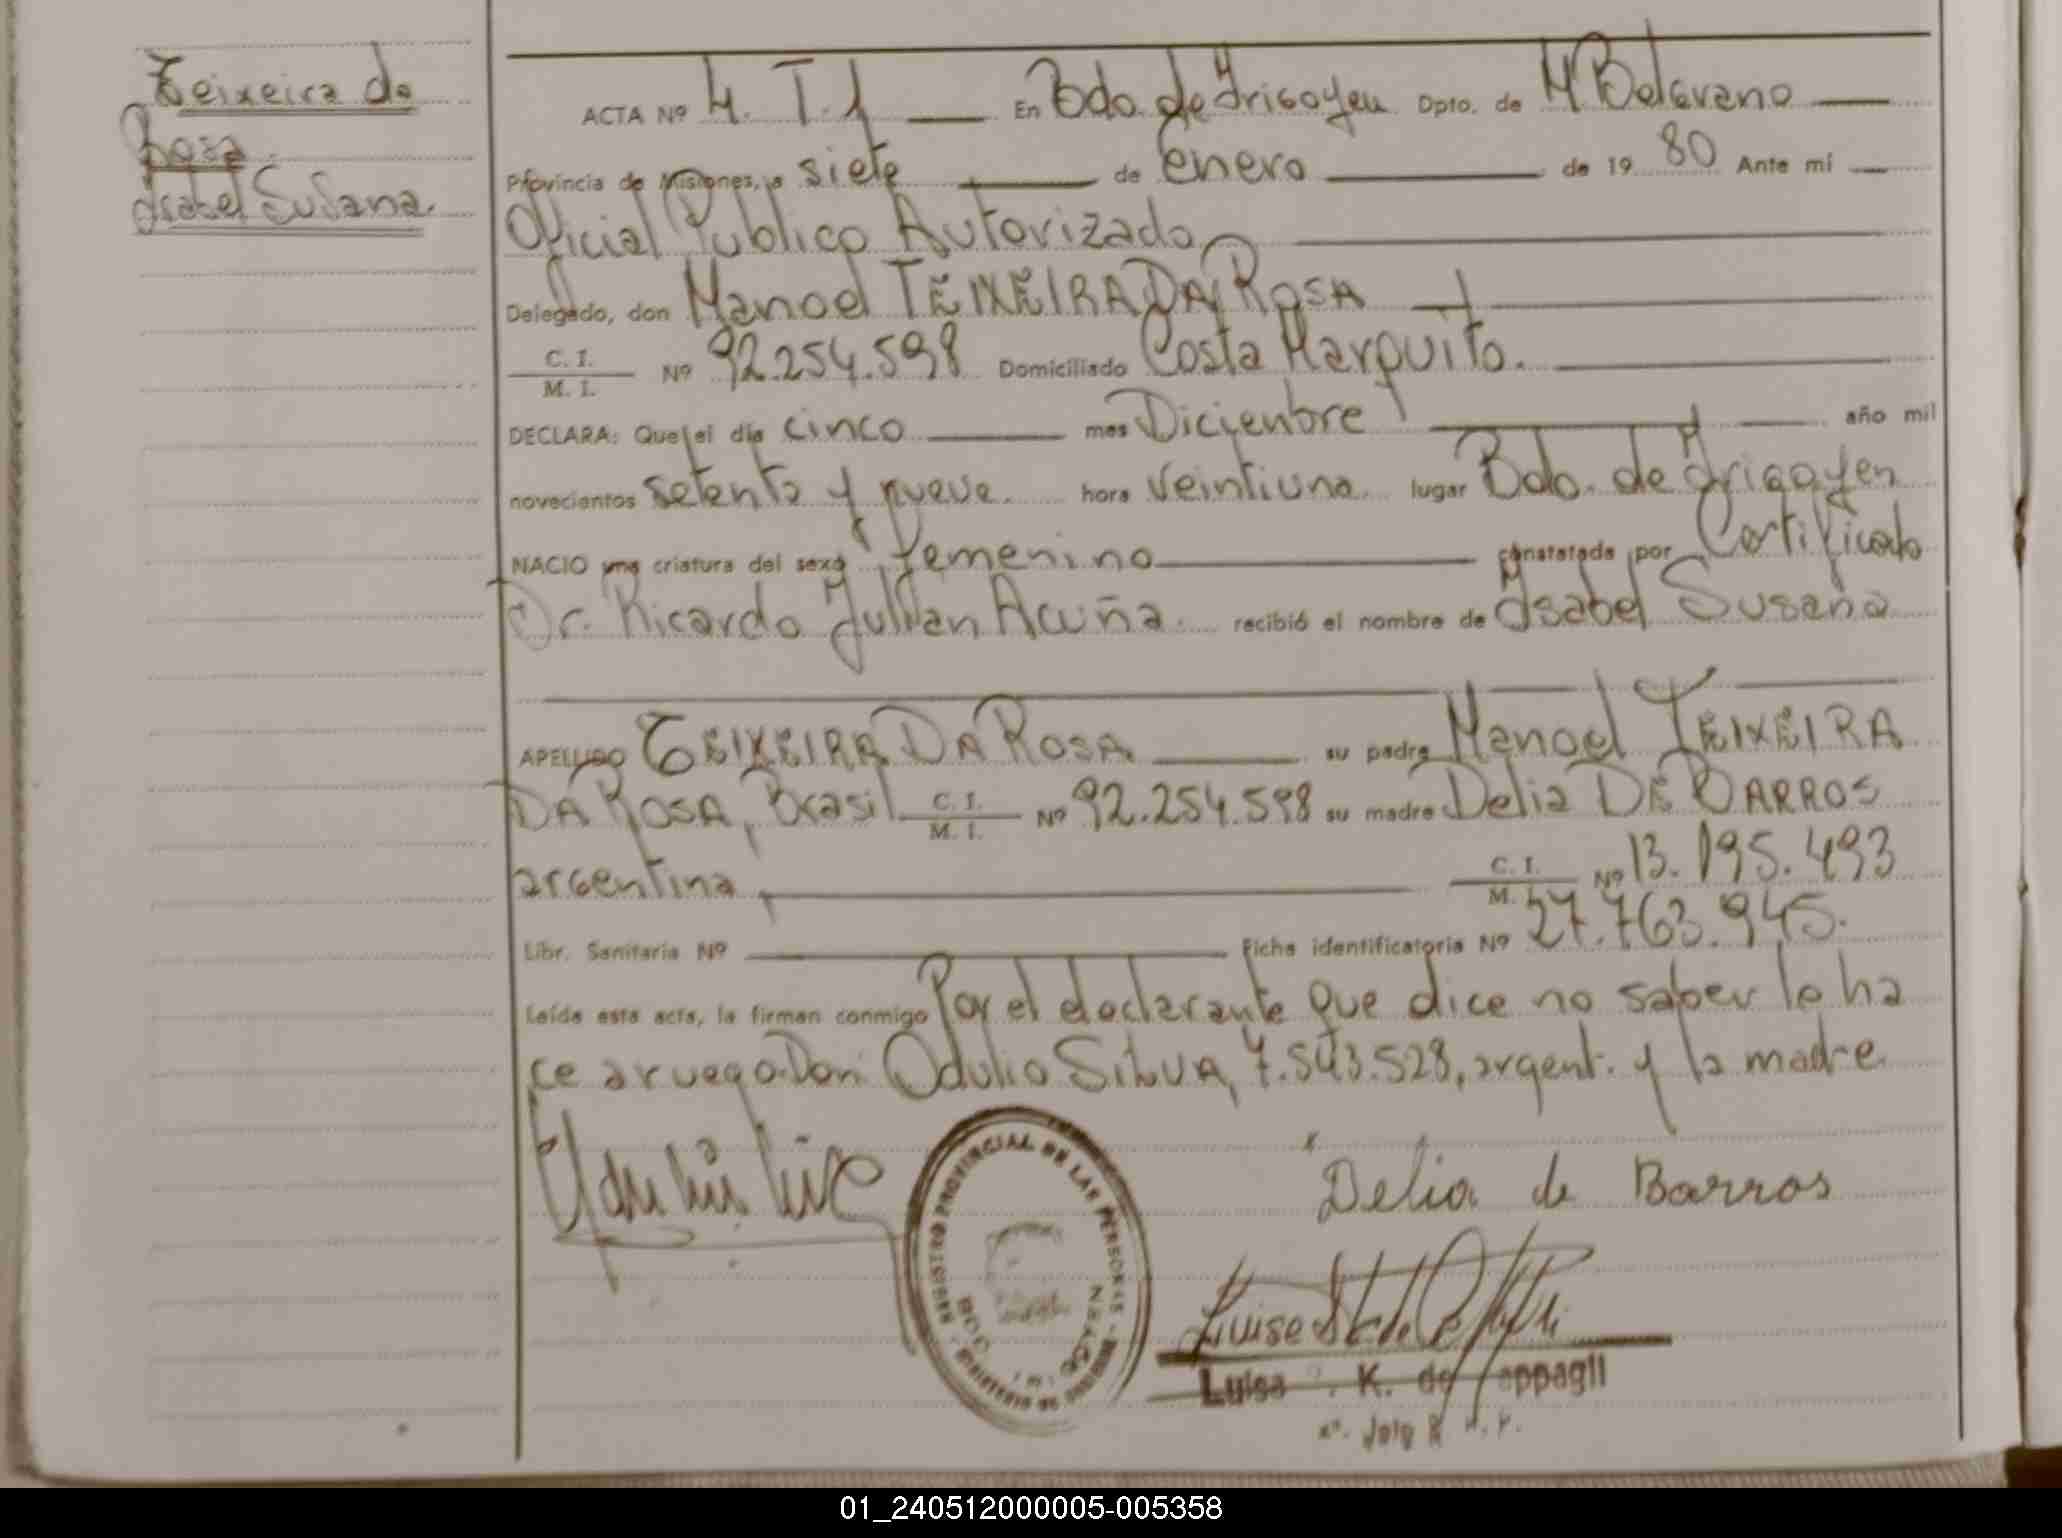 Teixeira da
Rosa
Isabel Susana.
ACTA Nº 4. T.1 En Bdo. de Irigoyen Dpto. de M Belgrano
Provincia de Misiones, a siete de enero de 1980 Ante mi
Oficial Público Autorizado
Delegado, don Manoel TEIXEIRA DA ROSA
C. I.
M. I. Nº 92.254.598 Domiciliado Costa Marquito.
DECLARA: Que el día cinco mes Diciembre año mil
novecientos setenta y nueve. hora veintiuna lugar Bdo. de Irigoyen
NACIO una criatura del sexo femenino constatada por Certificado
Dr. Ricardo Julian Acuña. recibió el nombre de Isabel Susana
APELLIDO TEIXEIRA DA ROSA su padre Manoel TEIXEIRA
DA ROSA, Brasil C. I. M. I. Nº 92.254.598 su madre Delia DE BARROS
argentina, C. I. M. I. Nº 13.195.493
Libr. Sanitaria Nº Ficha identificatoria Nº 27.763.945.
Leída esta acta, la firman conmigo Por el declarante que dice no saber lo ha
ce a ruego Don Odulio SILVA, 7.543.528, argent. y la madre
Delia de Barros
REGISTRO PROVINCIAL DE LAS PERSONAS - MISIONES
Luisa K. de
01_240512000005-005358